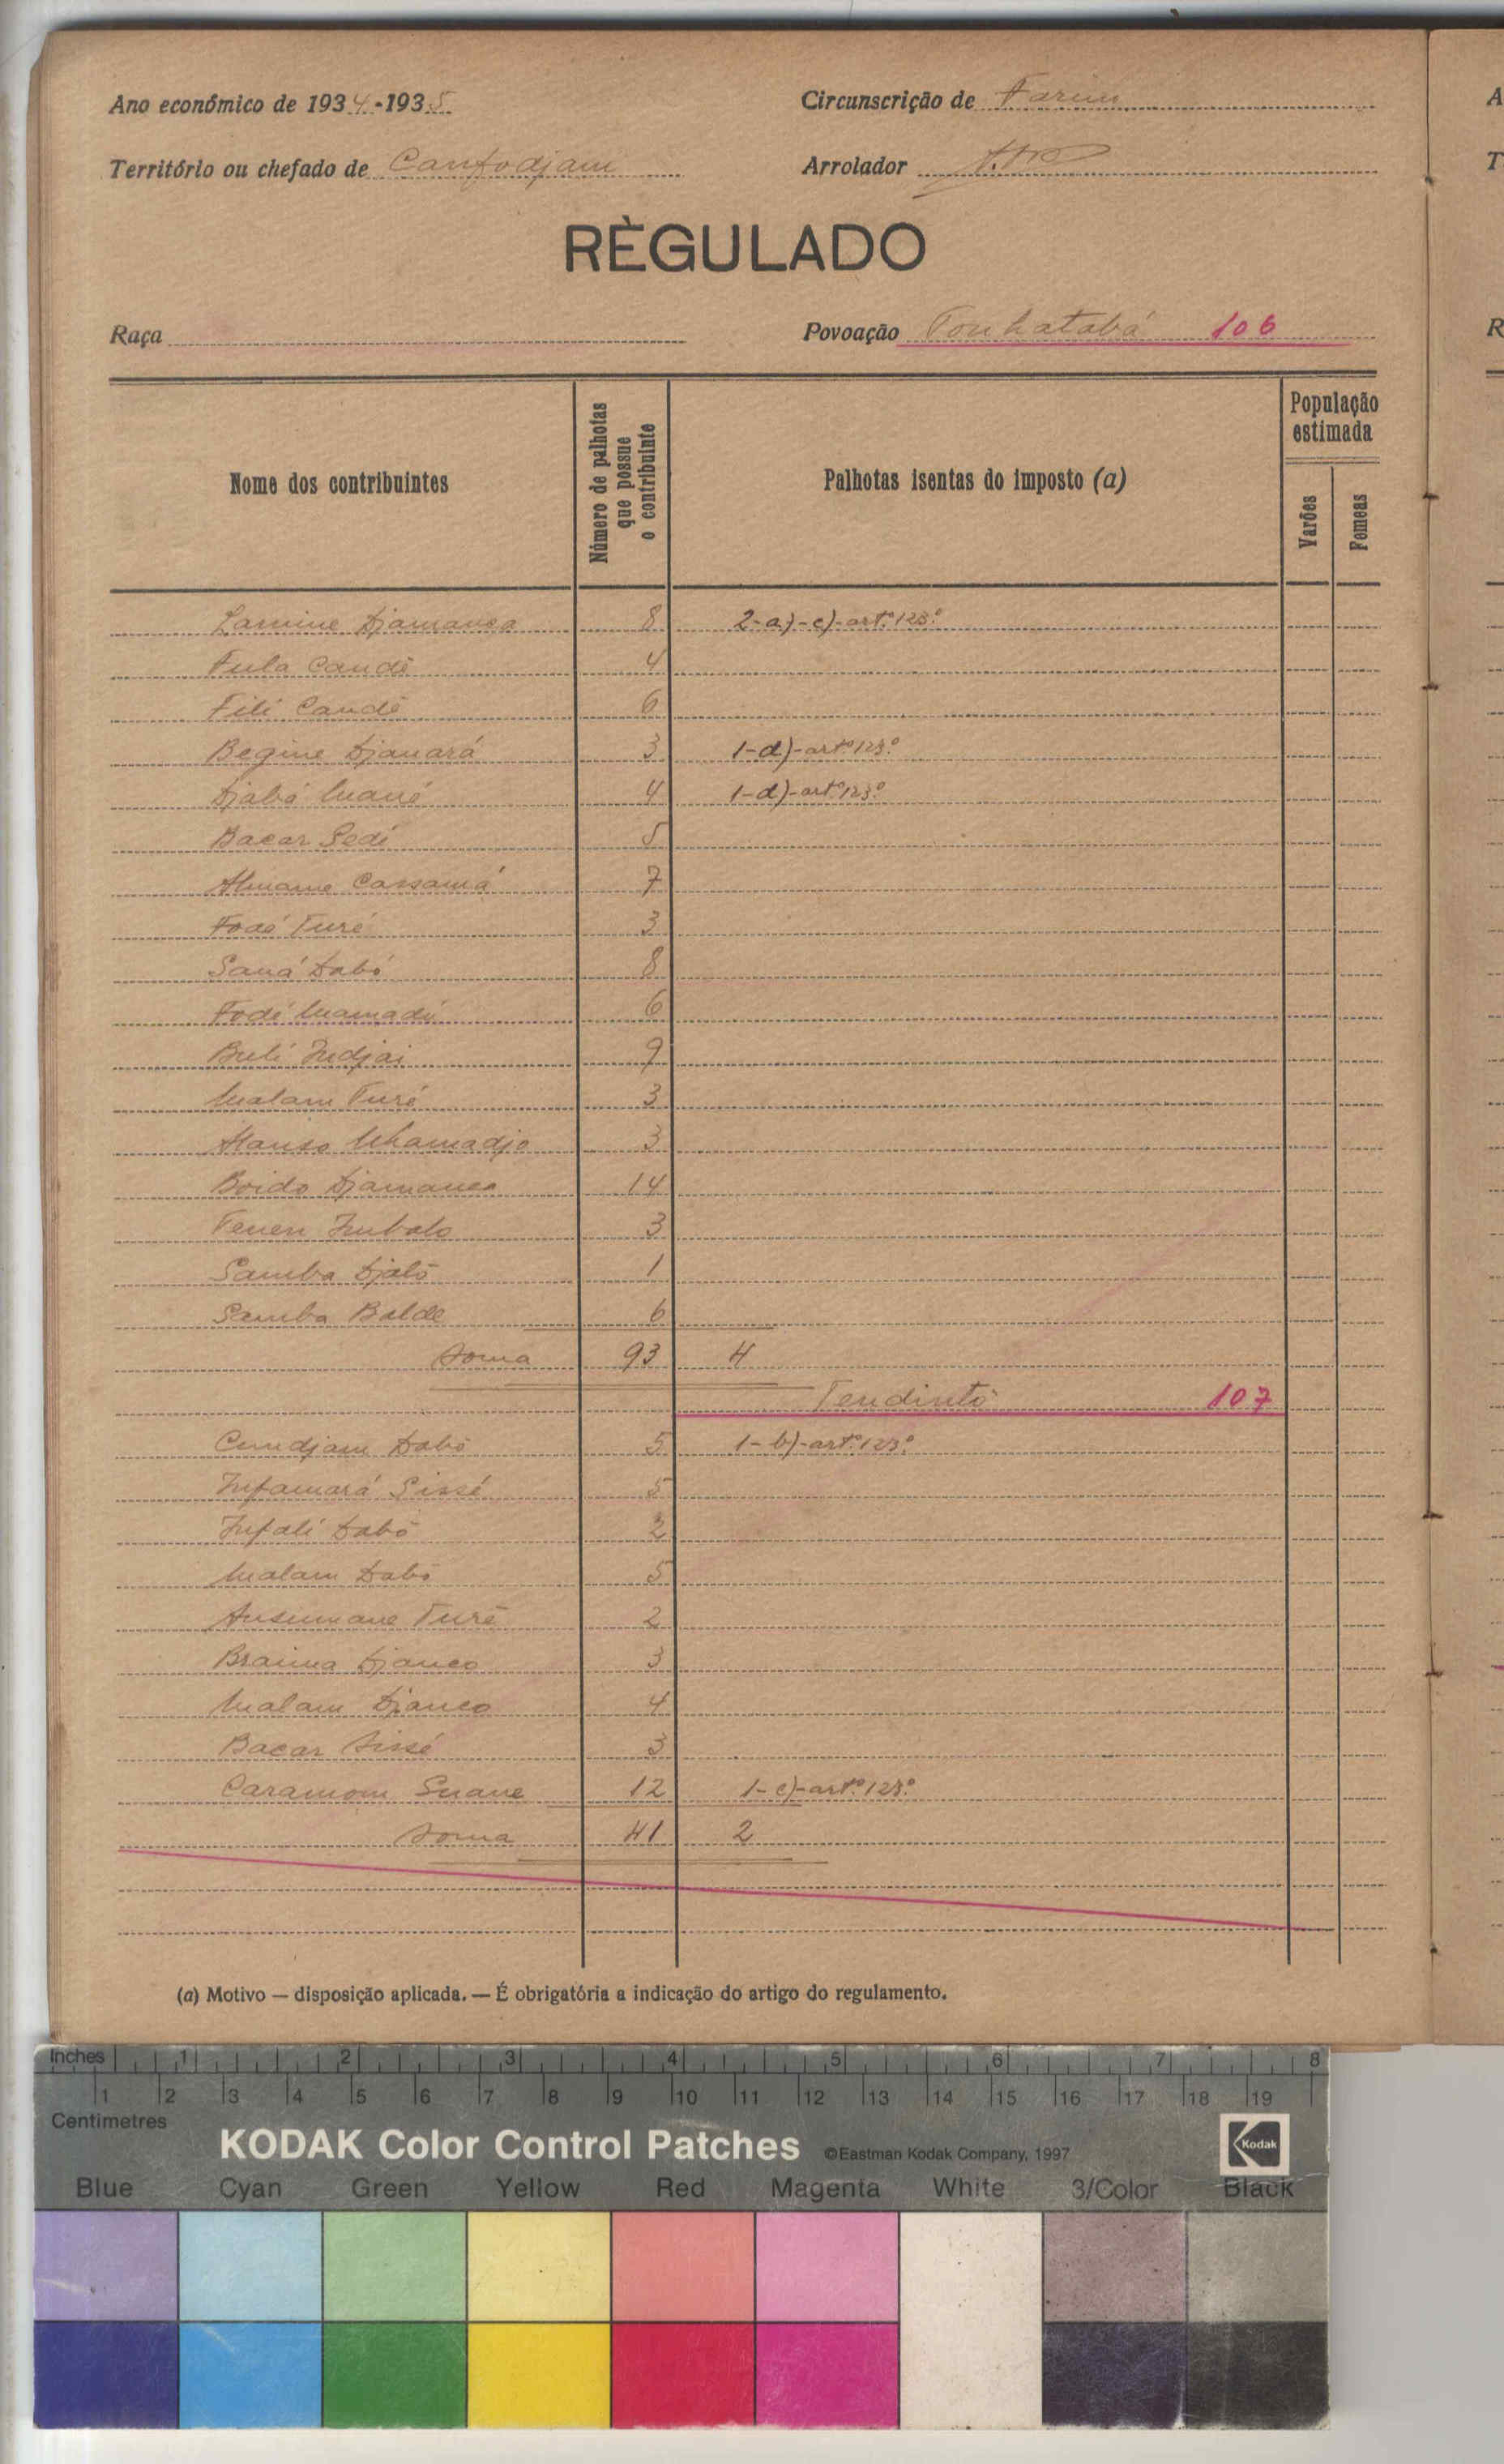 Ano económico de 1934-1935
Circunscrição de Farim
Território ou chefado de Canfodjam
Arrolador
RÈGULADO
Raça
Povoação Tonhatabá 106
Nome dos contribuintes
Número de palhotas que possue o contribuinte
Palhotas isentas do imposto (a)
População estimada
Varões
Femeas
Lamine Djamanca 8 2-a)-c)-artº 123º
Fula Candé 4
Fili Candé 6
Begine Djanará 3 1-d)-artº 123º
Djabá Mané 4 1-d)-artº 123º
Bacar Sedi 5
Almame Cassamá 7
Fodé Turé 3
Saná Dabó 8
Fodé Mamadú 6
Buli Indjai 9
Malam Turé 3
Alanso 3
Boido Djamanca 14
Tenen Imbalo 3
Samba Djaló 1
Samba Balde 6
Soma 93 4
Tendinto 107
Cundjam Dabó 5 1-b)-artº 123º
Infamará Sissé 5
Infali Dabó 2
Malam Dabó 5
Ansumane Turé 2
Braima Djanco 3
Malam Djanco 4
Bacar Sissé 3
Caramom Suane 12 1-c)-artº 123º
Soma 41 2
(a) Motivo — disposição aplicada. — É obrigatória a indicação do artigo do regulamento.
Inches 1 2 3 4 5 6 7 8
1 2 3 4 5 6 7 8 9 10 11 12 13 14 15 16 17 18 19
Centimetres
KODAK Color Control Patches ©Eastman Kodak Company, 1997 Kodak
Blue Cyan Green Yellow Red Magenta White 3/Color Black